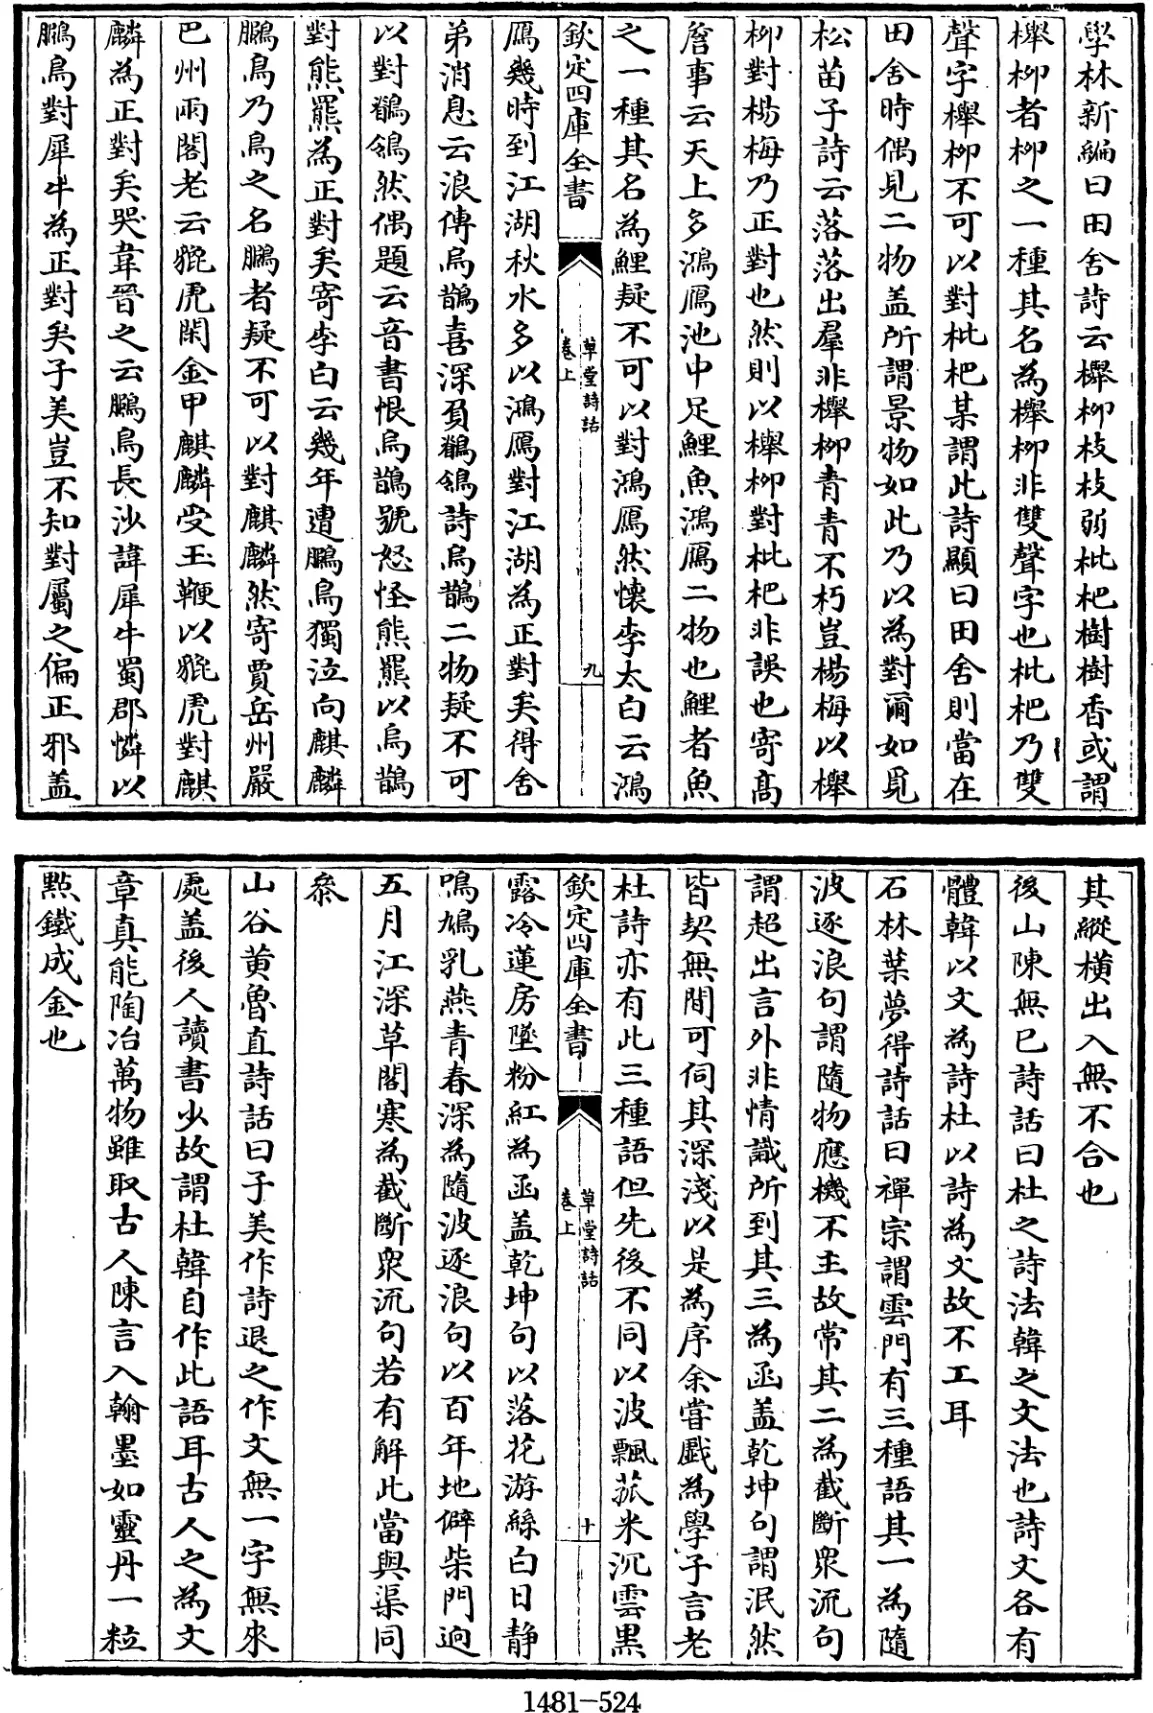 學林新編曰田舍詩云櫸柳枝枝弱枇杷樹樹香或謂
櫸柳者柳之一種其名為櫸柳非雙聲字也枇杷乃雙
聲字櫸柳不可以對枇杷某謂此詩顯曰田舍則當在
田舍時偶見二物盖所謂景物如此乃以為對爾如覓
松苗子詩云落落出羣非櫸柳青青不朽豈楊梅以櫸
柳對楊梅乃正對也然則以櫸柳對枇杷非誤也寄髙
詹事云天上多鴻鴈池中足鯉魚鴻鴈二物也鯉者魚
之一種其名為鯉疑不可以對鴻鴈然懷李太白云鴻
欽定四庫全書
草堂詩話
卷上
九
鴈幾時到江湖秋水多以鴻鴈對江湖為正對矣得舍
弟消息云浪傳烏鵲喜深負鶺鴒詩烏鵲二物疑不可
以對鶺鴒然偶題云音書恨烏鵲號怒怪熊羆以烏鵲
對熊羆為正對矣寄李白云幾年遭鵩鳥獨泣向麒麟
鵩鳥乃鳥之名鵩者疑不可以對麒麟然寄賈岳州嚴
巴州兩閣老云貔虎閑金甲麒麟受玉鞭以貔虎對麒
麟為正對矣哭韋晉之云鵩鳥長沙諱犀牛蜀郡憐以
鵩鳥對犀牛為正對矣子美豈不知對屬之偏正邪盖
其縱橫出入無不合也
後山陳無已詩話曰杜之詩法韓之文法也詩文各有
體韓以文為詩杜以詩為文故不工耳
石林葉夢得詩話曰禪宗謂雲門有三種語其一為隨
波逐浪句謂隨物應機不主故常其二為截斷衆流句
謂超出言外非情識所到其三為函盖乾坤句謂泯然
皆契無間可伺其深淺以是為序余嘗戲為學子言老
杜詩亦有此三種語但先後不同以波飄菰米沉雲黒
欽定四庫全書
草堂詩話
卷上
十
露冷蓮房墜粉紅為函盖乾坤句以落花游絲白日静
鳴鳩乳燕青春深為隨波逐浪句以百年地僻柴門迥
五月江深草閣寒為截斷衆流句若有解此當與渠同
叅
山谷黄魯直詩話曰子美作詩退之作文無一字無來
處盖後人讀書少故謂杜韓自作此語耳古人之為文
章真能陶冶萬物雖取古人陳言入翰墨如靈丹一粒
㸃鐵成金也
1481-524